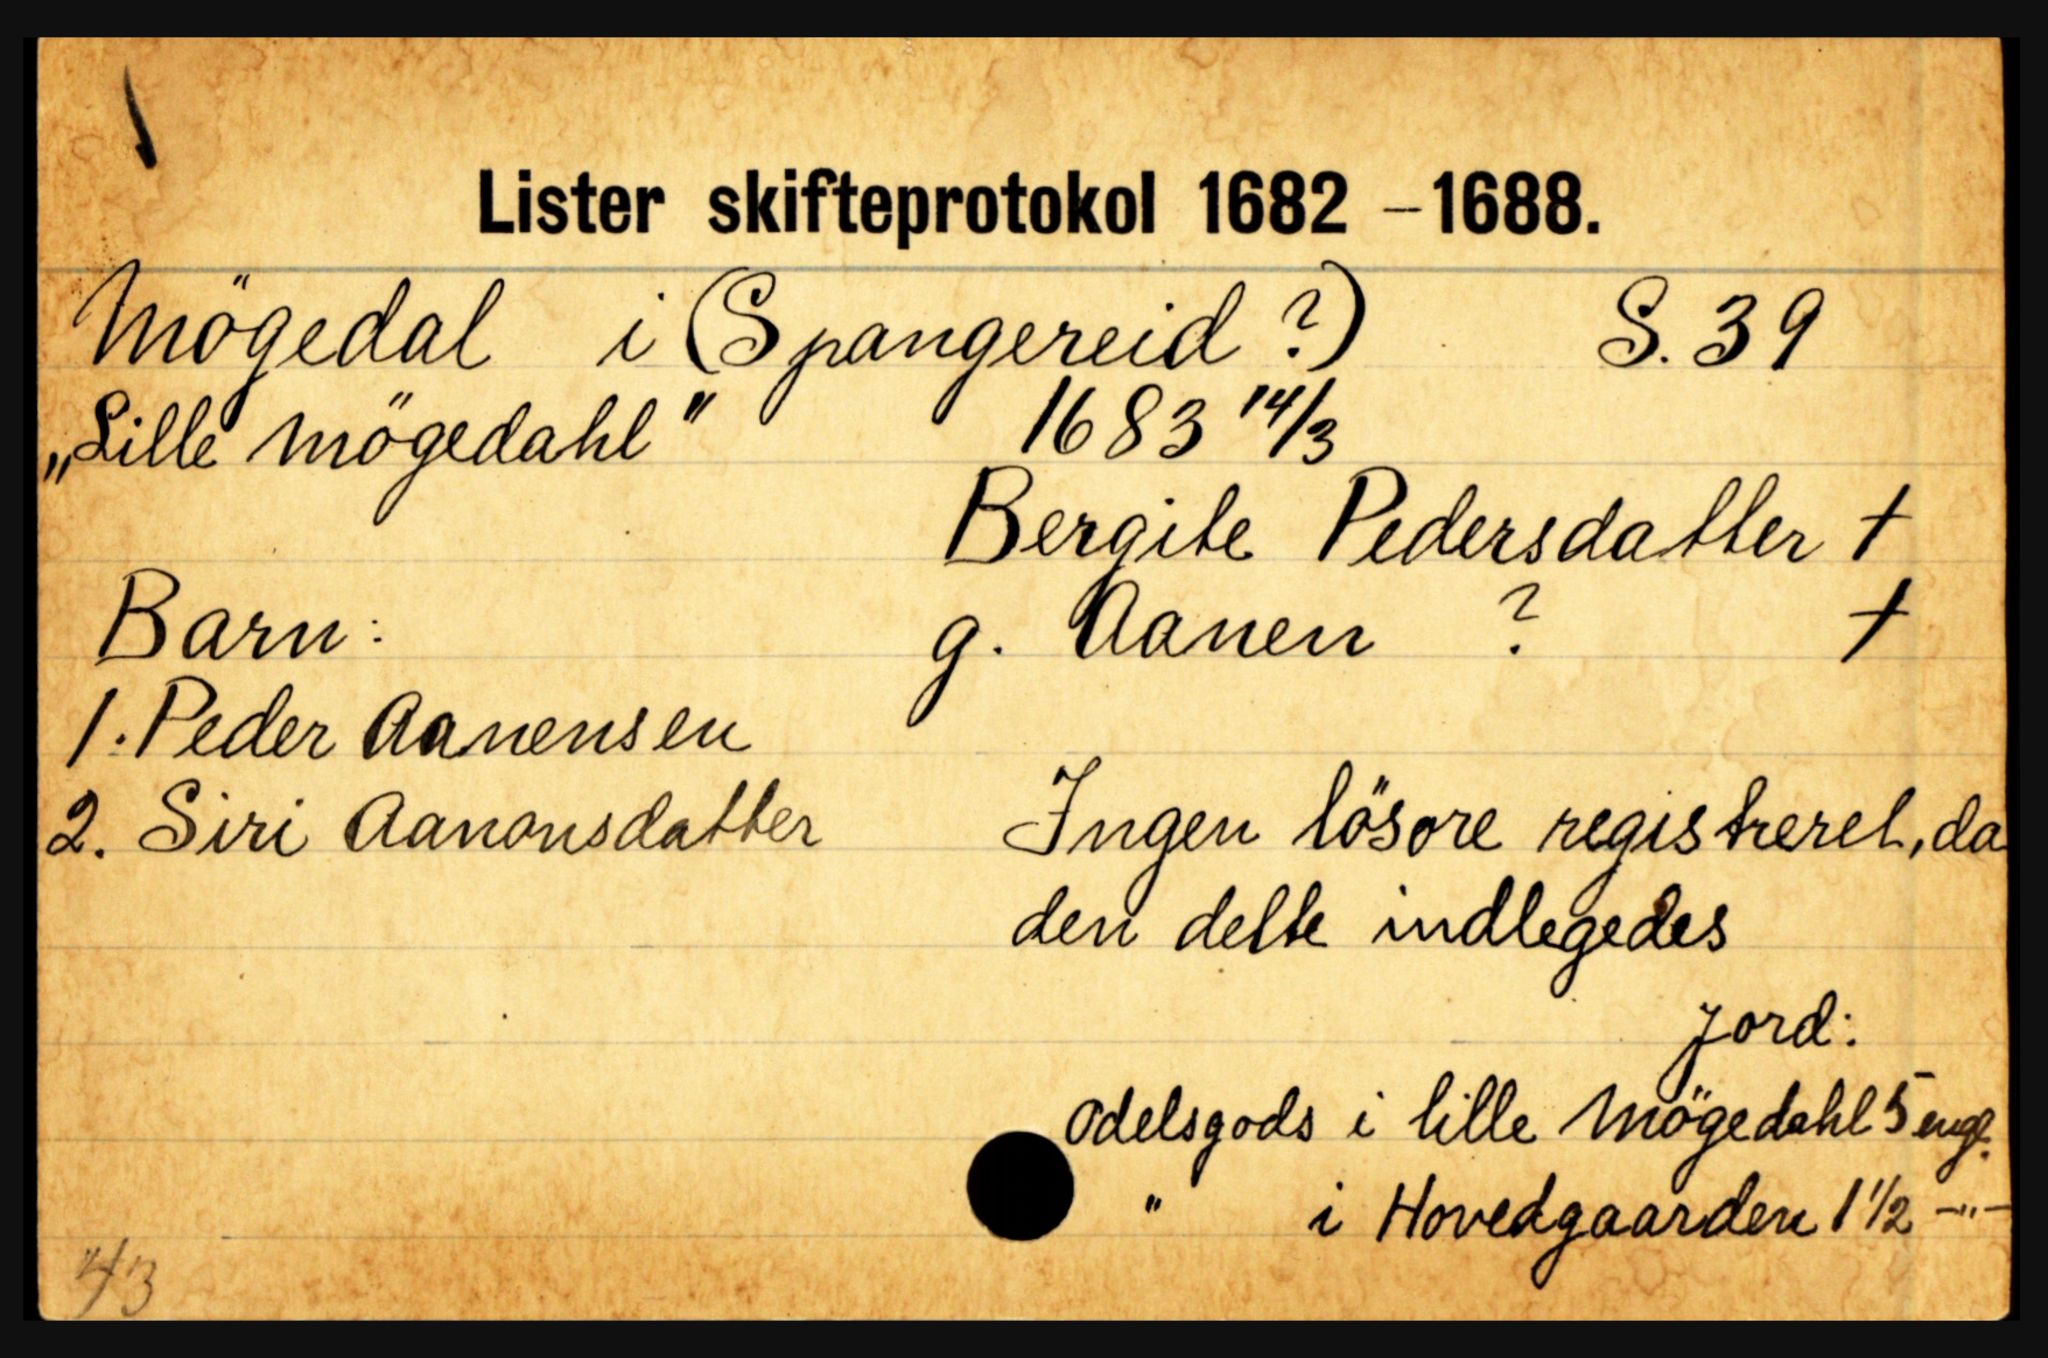 Lister skifteprotokol 1682 – 1688.
Mögedal i (Spangereid ?) S. 39
„Lille Mögedahl" 1683 14/3
Bergite Pedersdatter †
Barn: g. Aanen ? †
1. Peder Aanensen
2. Siri Aanonsdatter Ingen lösore registreret, da
den delte indlegedes
Jord:
Odelsgods i lille Mögedahl 5 engl.
" i Hovedgaarden 1 1/2 –"–
43